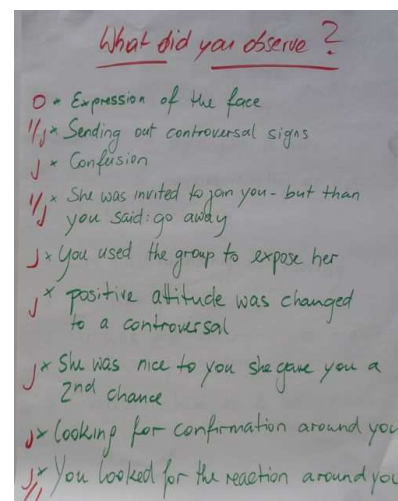 What did you observe ?
O × Expression of the face
I/J × Sending out controversal signs
J × Confusion
I/J × She was invited to join you - but than
you said: go away
J × You used the group to expose her
J × positive attitude was changed
to a controversal
J × She was nice to you she gave you a
2nd chance
J × Looking for confirmation around you
J × You looked for the reaction around you